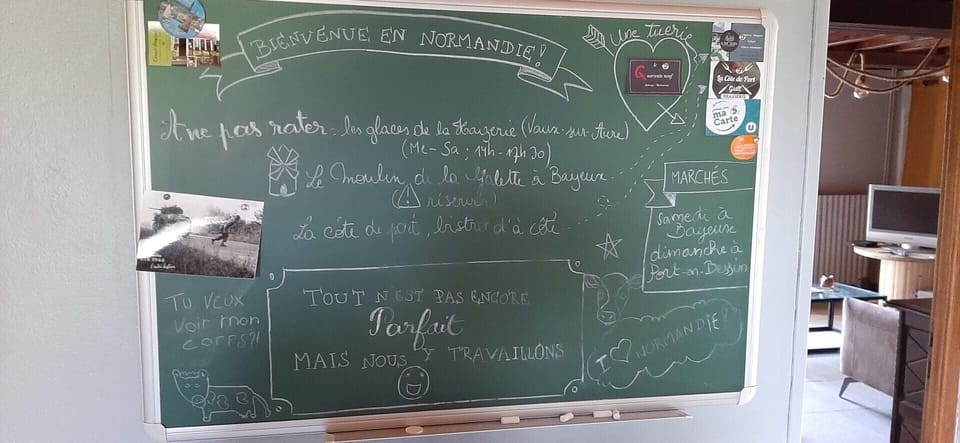 BIENVENUE EN NORMANDIE !
Une tuerie
Quarante neuf
A ne pas rater : les glaces de la Haizerie (Vaux-sur-Aure)
(Me-Sa ; 14h-17h30)
Le Moulin de la Galette à Bayeux
(⚠ réserver)
La côte de port, bistrot d'à côté
La Côte de Port
ma
Carte
U
MARCHÉS
Samedi à
Bayeux
dimanche à
Port-en-Bessin
TOUT N'EST PAS ENCORE
Parfait
MAIS NOUS Y TRAVAILLONS
TU VEUX
VOIR MON
CORPS?!
I ♡ NORMANDIE!